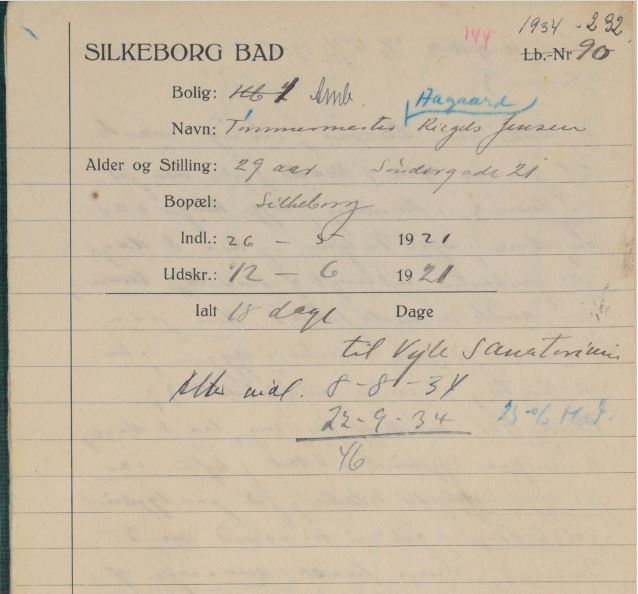 144 1934 - 292
SILKEBORG BAD Lb.-Nr 90
Bolig: Amb.
Hagaard
Navn: Tømmermester Riegels Jensen
Alder og Stilling: 29 aar Søndergade 21
Bopæl: Silkeborg
Indl.: 26 - 5 1921
Udskr.: 12 - 6 1921
Ialt 18 dage Dage
til Vejle Sanatorium
Atter indl. 8-8-34
22-9-34
46